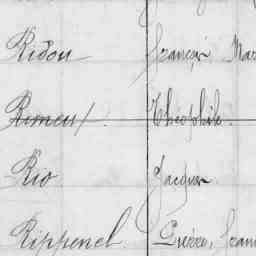 Ridou François Mar
Rimeux. Théophile.
Rio. Jacques.
Rippenel Pierre, Fran